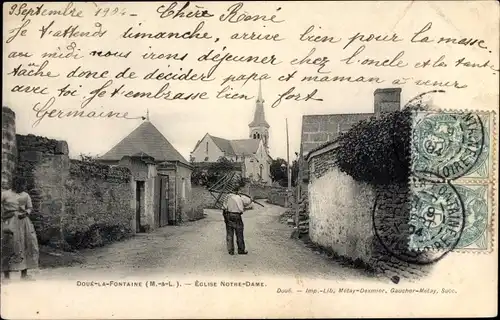 9 Septembre 1904 Chère René
Je t'attends dimanche, arrive bien pour la messe.
au midi nous irons déjeuner chez l'oncle et la tante
tâche donc de décider papa et maman a venir
avec toi, Je t'embrasse bien fort
Germaine
DOUÉ-LA-FONTAINE (M.-&-L.). — ÉGLISE NOTRE-DAME.
Doué. — Imp.-Lib., Métay-Desmier, Gaucher-Métay, Succ.